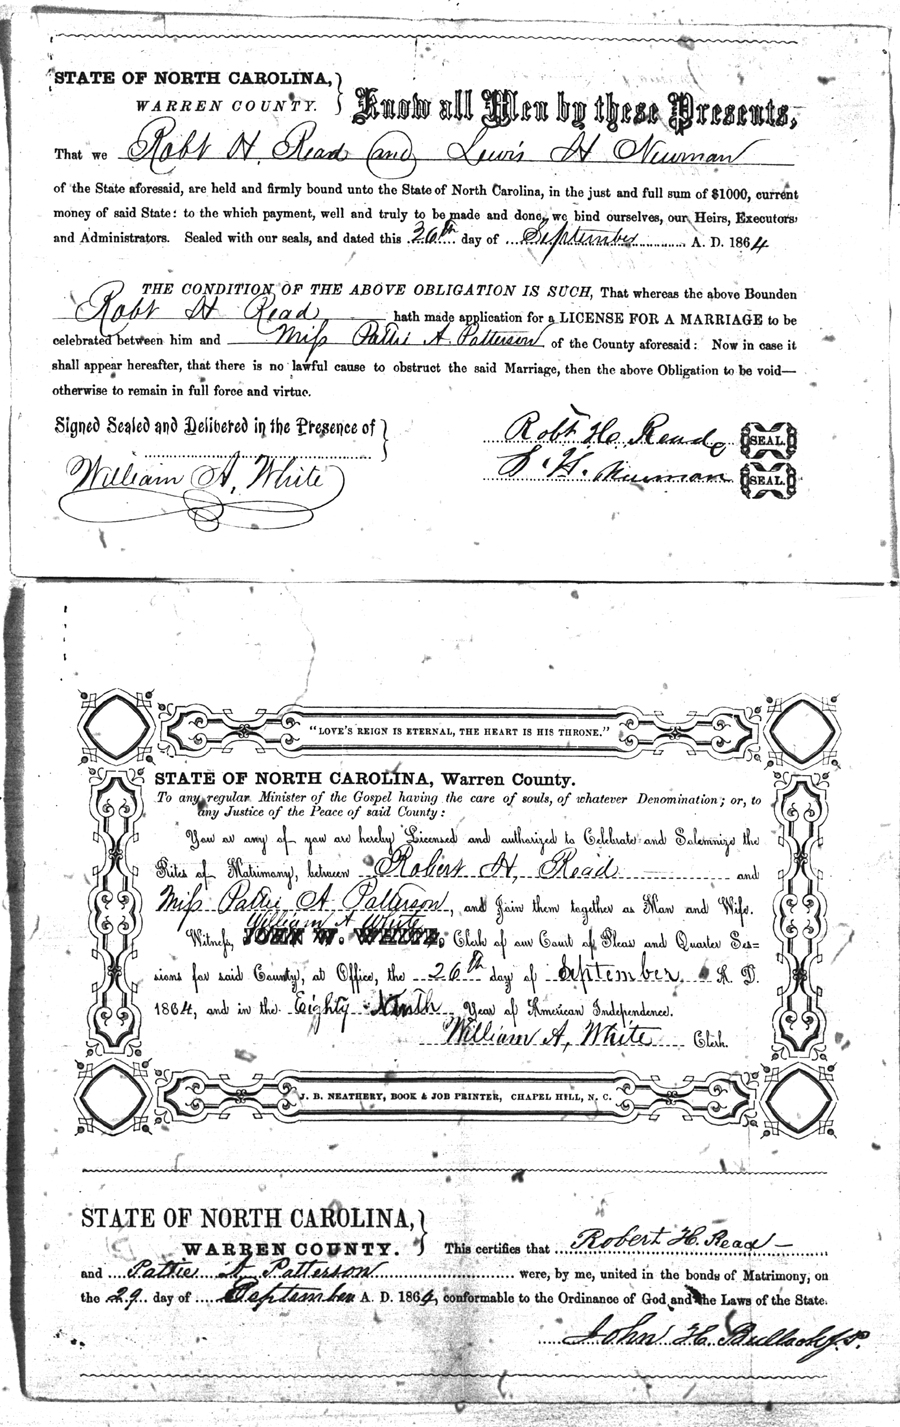 STATE OF NORTH CAROLINA,
WARREN COUNTY.
Know all Men by these Presents,
That we Robt H. Read and Lewis H Newman
of the State aforesaid, are held and firmly bound unto the State of North Carolina, in the just and full sum of $1000, current
money of said State: to the which payment, well and truly to be made and done, we bind ourselves, our Heirs, Executors
and Administrators. Sealed with our seals, and dated this 26th day of September A. D. 1864
THE CONDITION OF THE ABOVE OBLIGATION IS SUCH, That whereas the above Bounden
Robt H Read hath made application for a LICENSE FOR A MARRIAGE to be
celebrated between him and Miss Pattie A Patterson of the County aforesaid: Now in case it
shall appear hereafter, that there is no lawful cause to obstruct the said Marriage, then the above Obligation to be void—
otherwise to remain in full force and virtue.
Signed Sealed and Delivered in the Presence of
Robt H. Read SEAL.
William A, White
L. H. Newman SEAL.
"LOVE'S REIGN IS ETERNAL, THE HEART IS HIS THRONE."
STATE OF NORTH CAROLINA, Warren County.
To any regular Minister of the Gospel having the care of souls, of whatever Denomination; or, to
any Justice of the Peace of said County:
You or any of you are hereby Licensed and authorized to Celebrate and Solemnize the
Rites of Matrimony, between Robert H, Read and
Miss Pattie A Patterson, and Join them together as Man and Wife.
William A White
Witness, JOHN W. WHITE, Clerk of our Court of Pleas and Quarter Ses=
sions for said County, at Office, the 26th day of September A. D.
1864, and in the Eighty Ninth Year of American Independence.
William A, White Clerk.
J. B. NEATHERY, BOOK & JOB PRINTER, CHAPEL HILL, N. C.
STATE OF NORTH CAROLINA,
WARREN COUNTY.
This certifies that Robert H. Read
and Pattie A Patterson were, by me, united in the bonds of Matrimony, on
the 29 day of September A. D. 1864, conformable to the Ordinance of God and the Laws of the State.
John H. Bullock J.P.